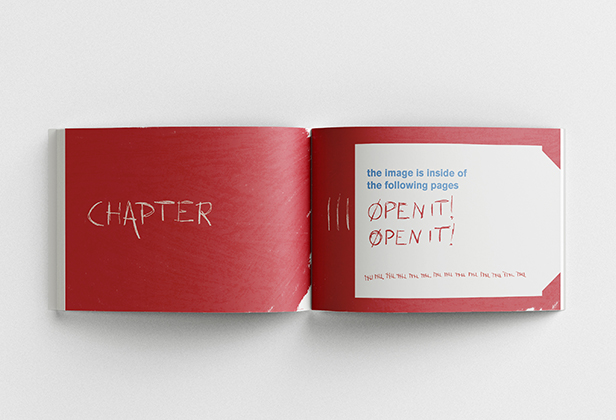 CHAPTER
III
the image is inside of
the following pages
ØPEN IT!
ØPEN IT!